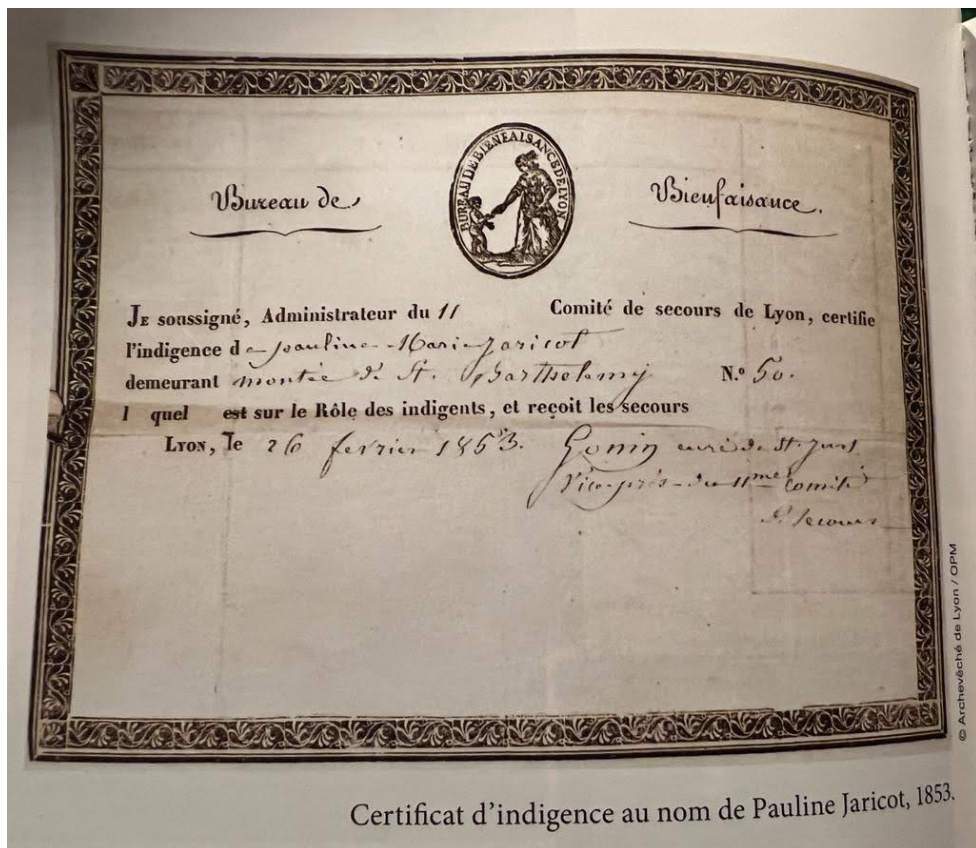 BUREAU DE BIENFAISANCE DE LYON
Bureau de Bienfaisance.
JE soussigné, Administrateur du 11 Comité de secours de Lyon, certifie
l'indigence de Pauline Marie Jaricot
demeurant montée de St. Barthelemy N.º 50.
l quel est sur le Rôle des indigents, et reçoit les secours
LYON, le 26 fevrier 1853. Gonin curé de St. Just
Vice-prés. du 11me Comité
de Secours
© Archevêché de Lyon / OPM
Certificat d'indigence au nom de Pauline Jaricot, 1853.